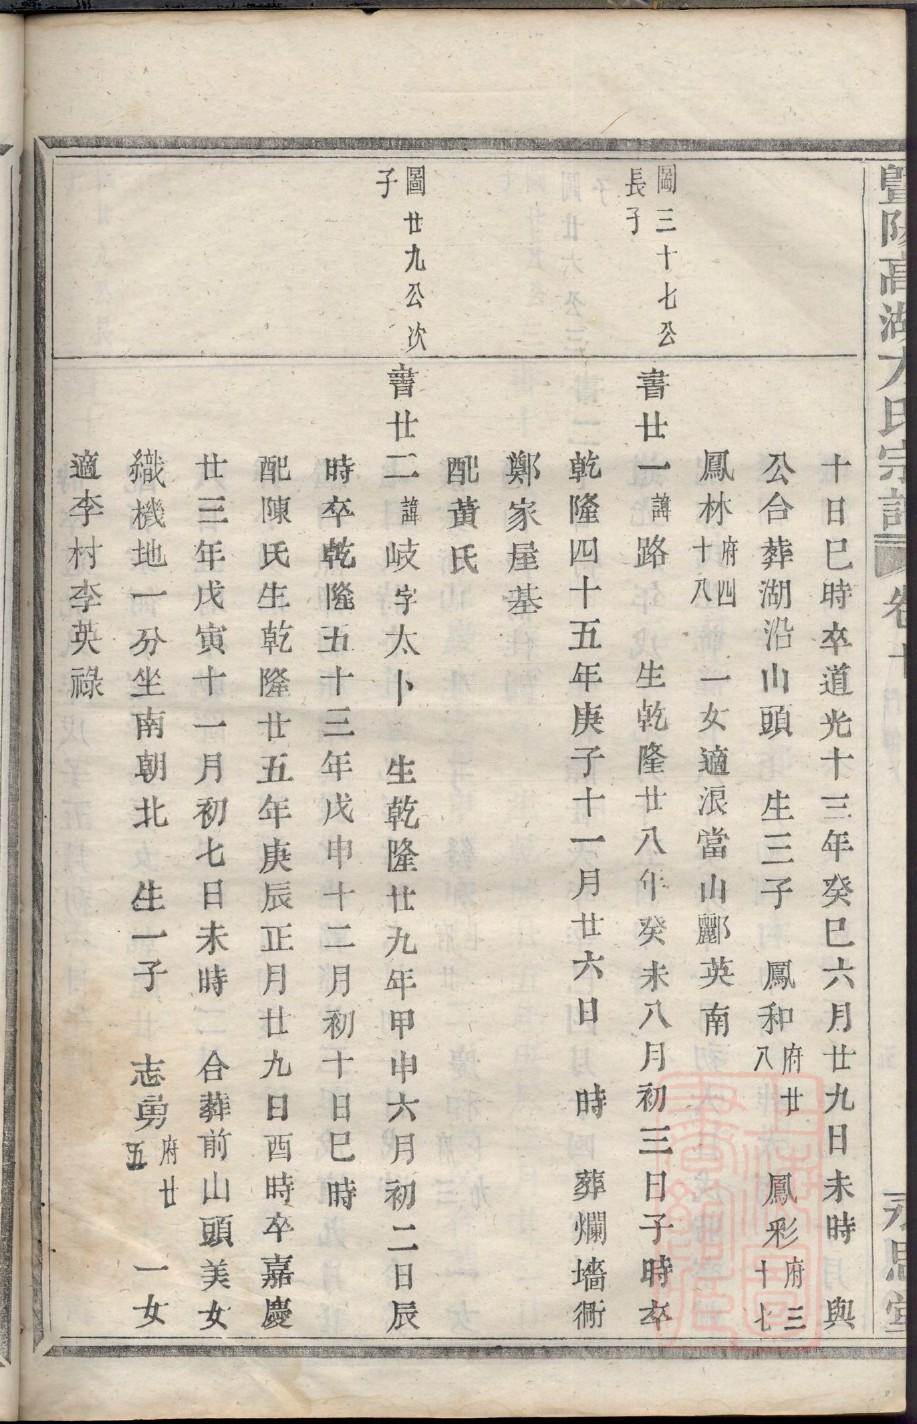 暨陽高湖方氏宗譜 卷十 永思堂
十日巳時卒道光十三年癸巳六月廿九日未時 與
公合葬湖沿山頭 生三子 鳳和府廿八 鳳彩府三十七
鳳林府四十八 一女適浪當山酈英南
圖三十七公長子
書廿一諱路 生乾隆廿八年癸未八月初三日子時卒
乾隆四十五年庚子十一月廿六日 時 葬爛墻衕
鄭家屋基
配黃氏
圖廿九公次子
書廿二諱岐字太卜 生乾隆廿九年甲申六月初二日辰
時卒乾隆五十三年戊申十二月初十日巳時
配陳氏生乾隆廿五年庚辰正月廿九日酉時卒嘉慶
廿三年戊寅十一月初七日未時 合葬前山頭美女
織機地一穴坐南朝北 生一子 志勇府廿五 一女
適李村李英祿